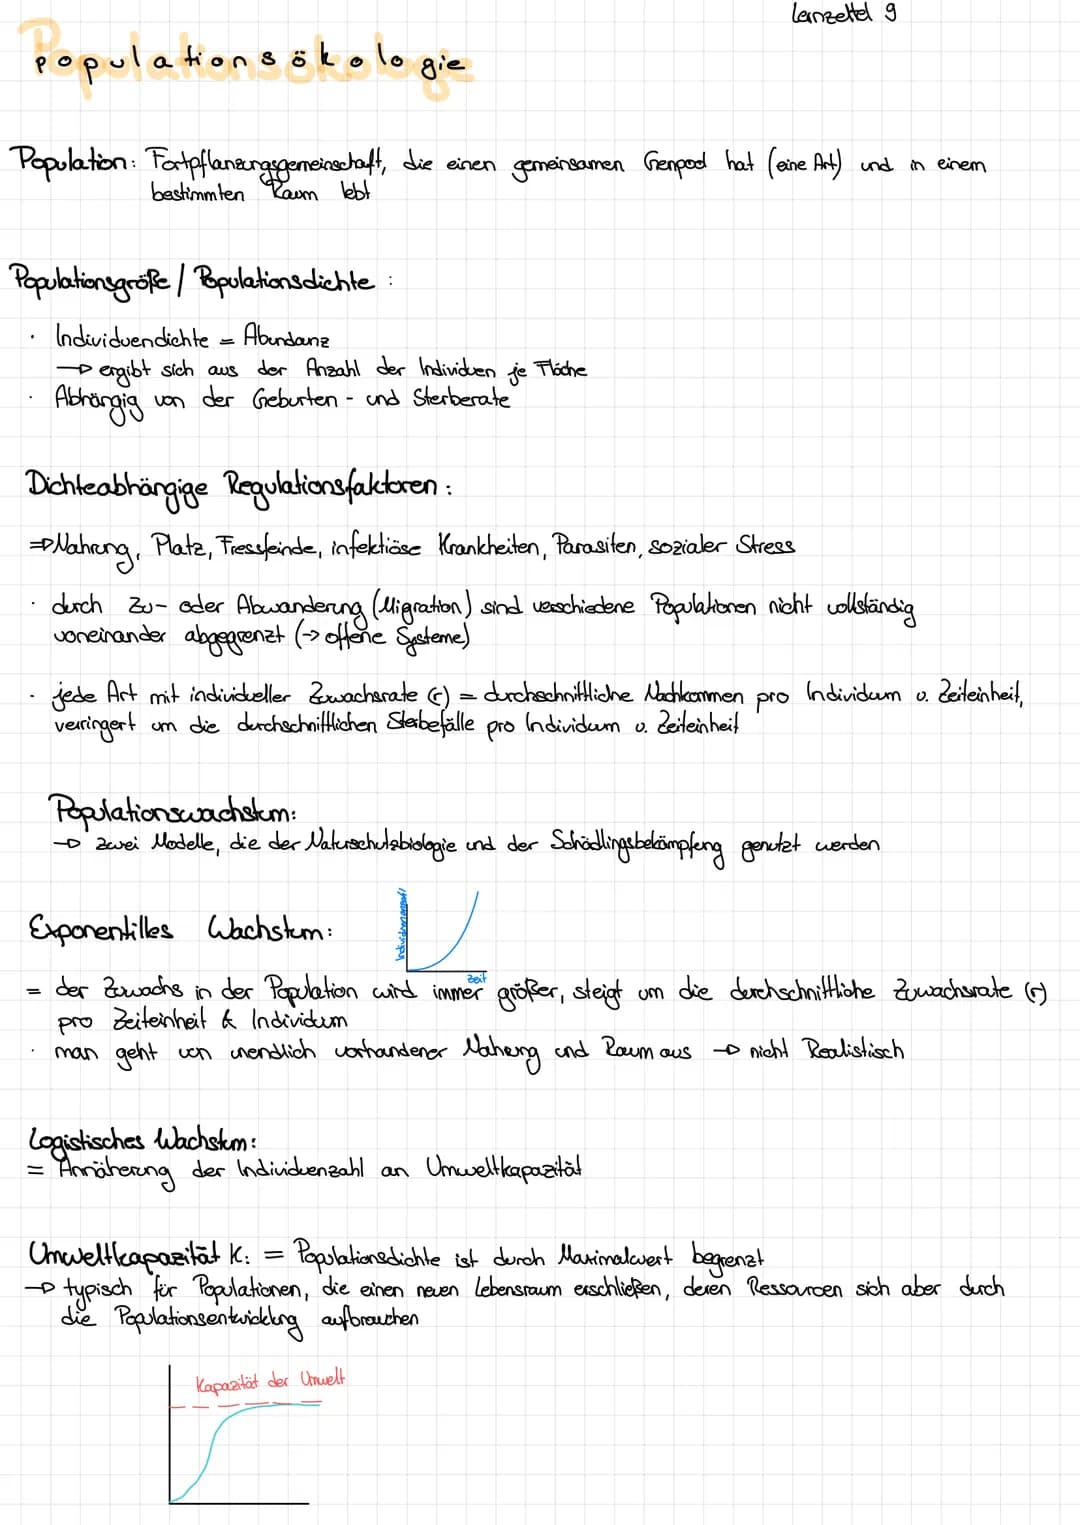 Lernzettel 9
Populationsökologie
Population: Fortpflanzungsgemeinschaft, die einen gemeinsamen Genpool hat (eine Art) und in einem
bestimmten Raum lebt
Populationsgröße / Populationsdichte :
· Individuendichte = Abundanz
→ ergibt sich aus der Anzahl der Individuen je Fläche
· Abhängig von der Geburten- und Sterberate
Dichteabhängige Regulationsfaktoren:
⇒ Nahrung, Platz, Fressfeinde, infektiöse Krankheiten, Parasiten, sozialer Stress
· durch Zu- oder Abwanderung (Migration) sind verschiedene Populationen nicht vollständig
voneinander abgegrenzt (→ offene Systeme)
· jede Art mit individueller Zuwachsrate (r) = durchschnittliche Nachkommen pro Individuum u. Zeiteinheit,
verringert um die durchschnittlichen Sterbefälle pro Individuum u. Zeiteinheit
Populationswachstum:
→ zwei Modelle, die der Naturschutzbiologie und der Schädlingsbekämpfung genutzt werden
Exponentilles Wachstum:
Individuenanzahl
Zeit
= der Zuwachs in der Population wird immer größer, steigt um die durchschnittliche Zuwachsrate (r)
pro Zeiteinheit & Individuum
· man geht von unendlich vorhandener Nahrung und Raum aus → nicht Realistisch
Logistisches Wachstum:
= Annäherung der Individuenzahl an Umweltkapazität
Umweltkapazität K: = Populationsdichte ist durch Maximalwert begrenzt
→ typisch für Populationen, die einen neuen Lebensraum erschließen, deren Ressourcen sich aber durch
die Populationsentwicklung aufbrauchen
Kapazität der Umwelt